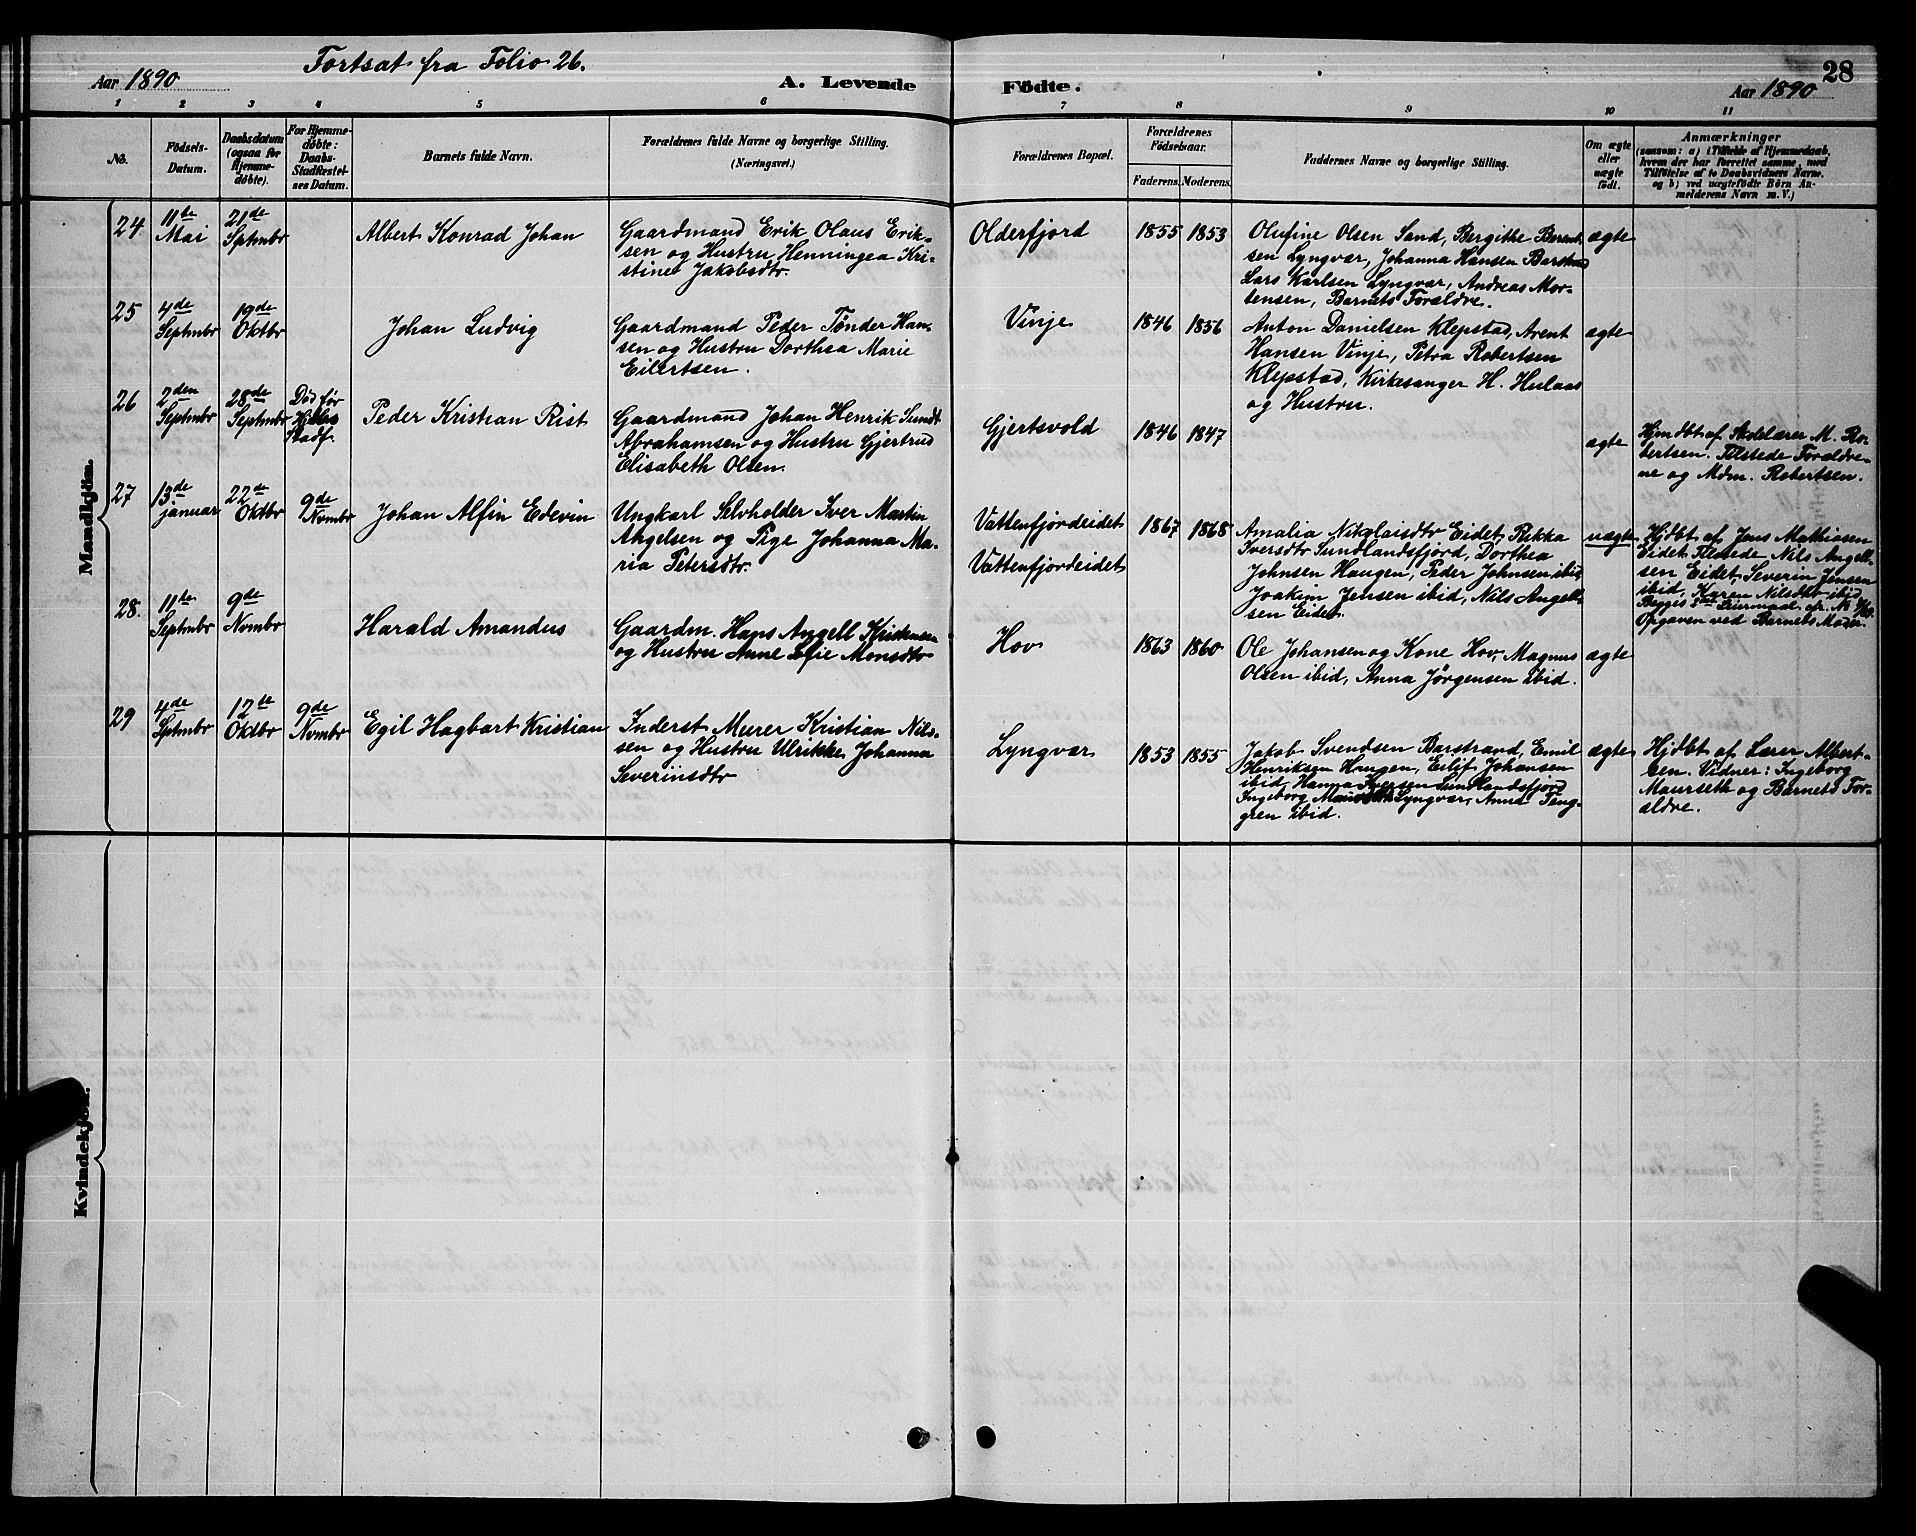 Fortsat fra Folio 26.
Aar 1890
A. Levende Fødte.
Aar 1890
28
1 2 3 4 5 6 7 8 9 10 11
No.
Fødsels-
Datum.
Daabsdatum
(ogsaa for
Hjemme-
døbte).
For Hjemme-
døbte:
Daabs-
Stadfæstel-
ses Datum.
Barnets fulde Navn.
Forældrenes fulde Navne og borgerlige Stilling.
(Næringsvei.)
Forældrenes Bopæl.
Forældrenes
Fødselsaar.
Faderens. Moderens.
Faddernes Navne og borgerlige Stilling.
Om ægte
eller
uægte
født.
Anmærkninger
(saasom: a) i Tilfælde af Hjemmedaab,
hvem der har forrettet samme, med
Tilføielse af to Daabsvidners Navne.
og b) ved uægtefødte Børn An-
melderens Navn m. V.)
Mandkjøn.
24
11te
Mai
21de
Sptmbr
Albert Konrad Johan
Gaardmand Erik Olaus Erik-
sen og Hustru Henningea Kri-
stine Jakobsdtr.
Olderfjord
1855 1853
Olufine Olsen Sand, Bergithe Berent-
sen Lyngvær, Johanna Hansen Barstrand
Lars Karlsen Lyngvær, Andreas Mor-
tensen, Barnets Forældre.
ægte
25
4de
Septmbr
19de
Oktbr
Johan Ludvig
Gaardmand Peder Tønder Han-
sen og Hustru Dorthea Marie
Eilertsen.
Vinje
1846 1856
Anton Danielsen Klepstad, Arent
Hansen Vinje, Petra Robertsen
Klepstad, Kirkesanger H. Hulaas
og Hustru.
ægte
26
2den
Septmbr
28de
Septmbr
Død før
Stadf.
Peder Kristian Rist
Gaardmand Johan Henrik Sundt
Abrahamsen og Hustru Gjertrud
Elisabeth Olsen.
Gjertsvold
1846 1847
ægte
Hjmdbt af Skolelærer M. Ro-
bertsen. Tilstede Forældre-
ne og Mdm. Robertsen.
27
13de
januar
22de
Oktbr
9de
Nvmbr
Johan Alfin Edevin
Ungkarl Selvholder Iver Martin
Angelsen og Pige Johanna Ma-
ria Petersdtr.
Vattenfjordeidet
Vattenfjordeidet
1867 1868
Amalia Nikolaisdtr Eidet, Rikka
Iversdtr Sundlandsfjord, Dorthea
Johnsen Haugen, Peder Johnsen ibid
Joakim Jensen ibid, Nils Angell-
sen Eidet.
uægte
Hjdbt af Jens Mathiasen
Eidet. Tilstede Nils Angell-
sen Eidet, Severin Jensen
ibid, Karen Nilsdtr ibid
Begges Leiermaal
Opgaven ved Barnets Moder.
28.
11te
Septmbr
9de
Nvmbr
Harald Amandus
Gaardm. Hans Angell Kristensen
og Hustru Anne Sofie Monsdtr
Hov
1863 1860
Ole Johansen og Kone Hov, Magnus
Olsen ibid, Anna Jørgensen ibid.
ægte
29
4de
Sptmbr
12te
Oktbr
9de
Nvmbr
Egil Hagbart Kristian
Inderst Murer Kristian Nils-
sen og Hustru Ulrikke Johanna
Severinsdtr
Lyngvær
1853 1855
Jakob Svendsen Barstrand, Emil
Henriksen Haugen, Eilif Johansen
ibid, Hanna Iversen Sundlandsfjord
Ingeborg Maurseth Lyngvær, Anna Teng-
gren ibid.
ægte
Hjdbt af Lærer Albert-
sen. Vidner: Ingeborg
Maurseth og Barnets For-
ældre.
Kvindekjøn.